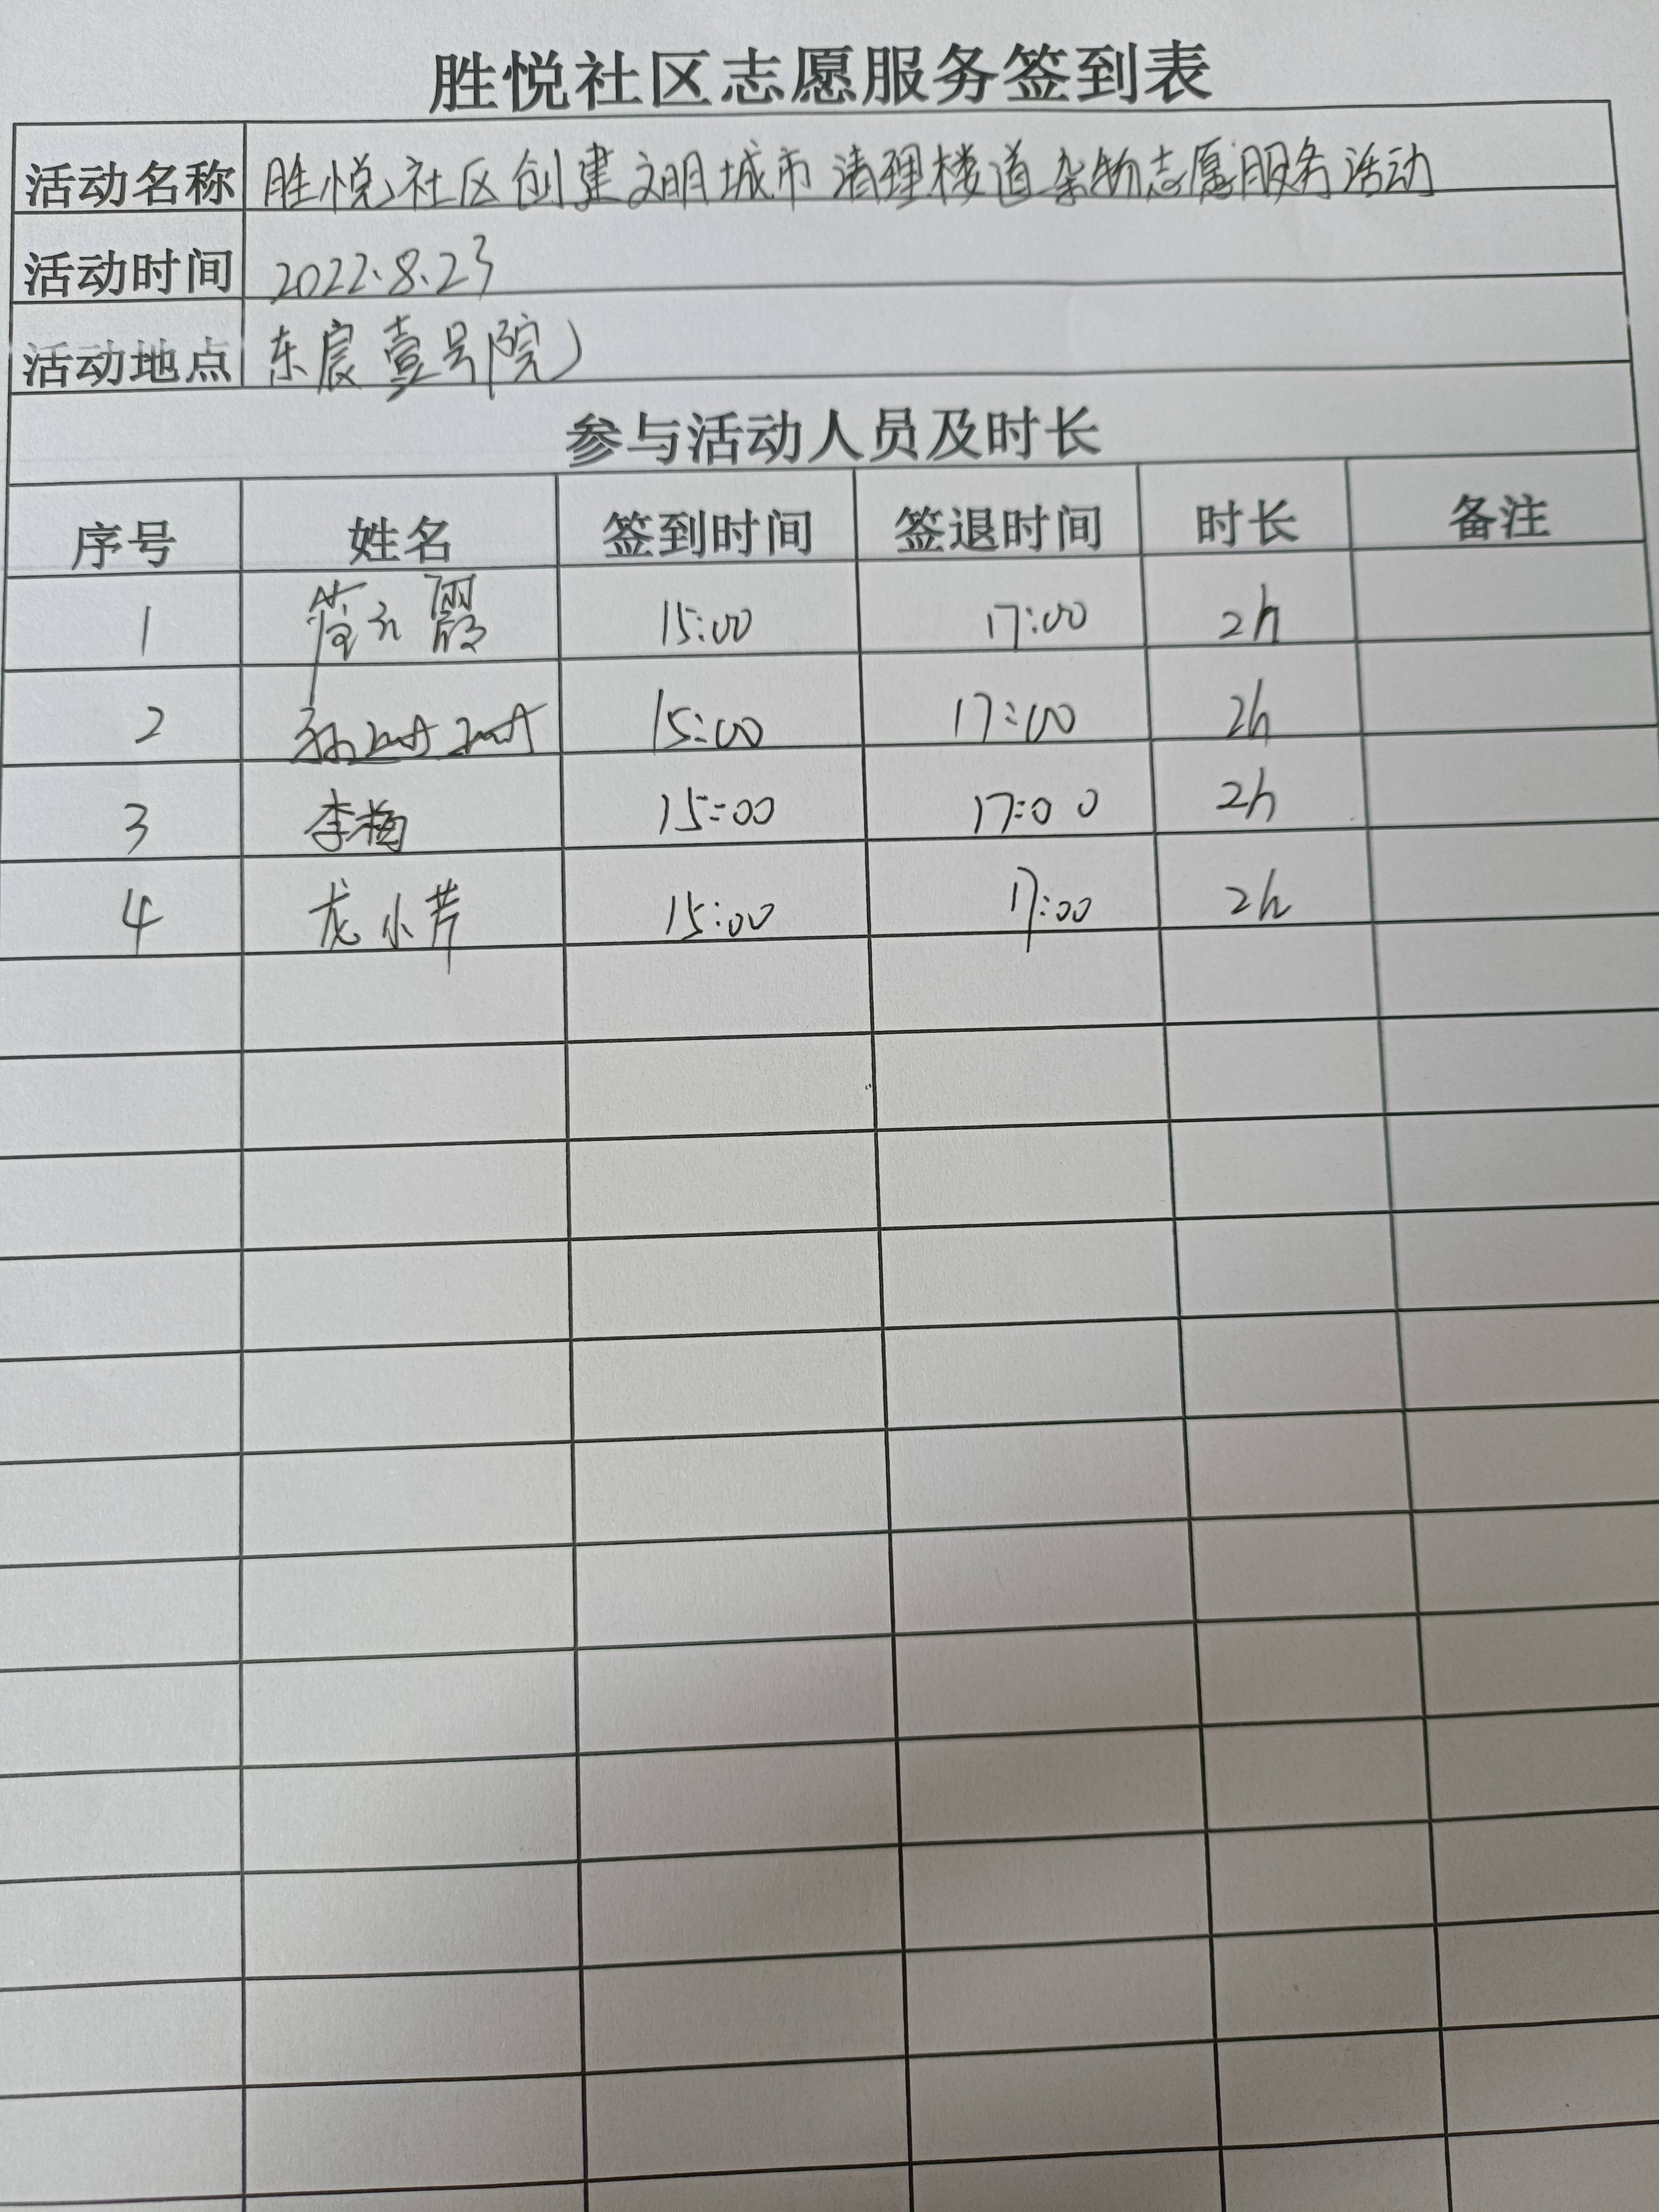 胜悦社区志愿服务签到表
活动名称 胜悦社区创建文明城市清理楼道杂物志愿服务活动
活动时间 2022.8.23
活动地点 东宸壹号院
参与活动人员及时长
序号 姓名 签到时间 签退时间 时长 备注
1 霞 15:00 17:00 2h
2 15:00 17:00 2h
3 李梅 15:00 17:00 2h
4 龙小芹 15:00 17:00 2h